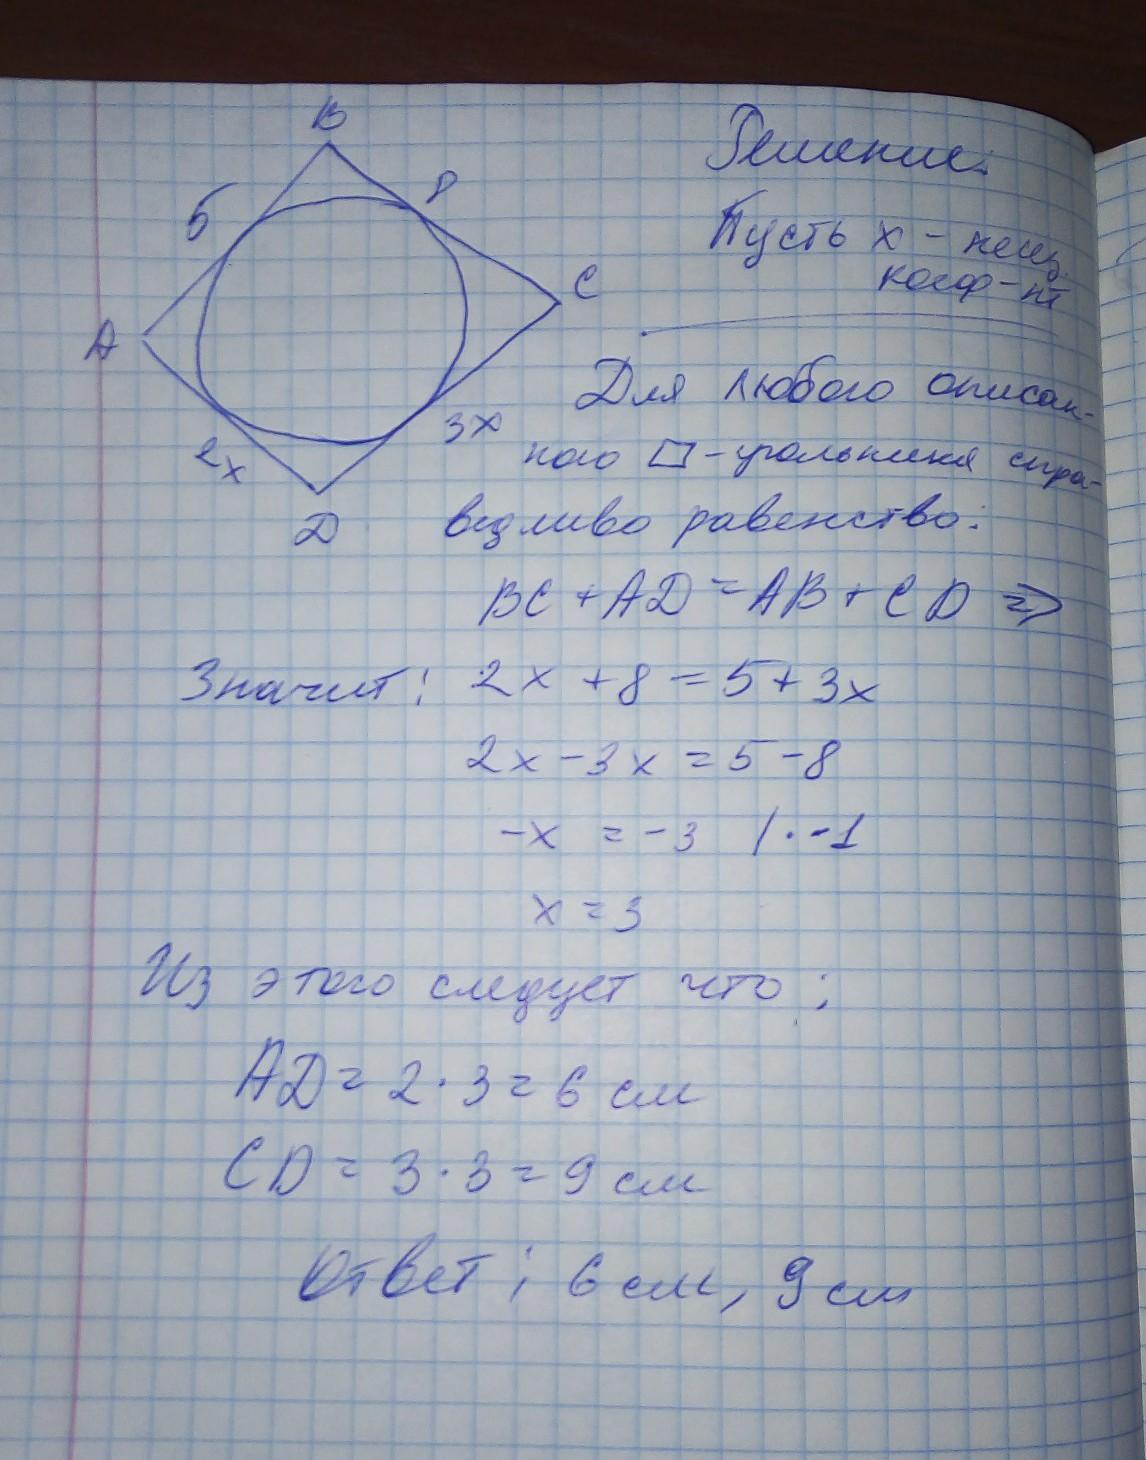 B
5
8
C
A
2x
3x
D
Решение:
Пусть x - неиз.
коэф-нт
Для любого описан-
ного □-угольника спра-
ведливо равенство:
BC + AD = AB + CD =>
Значит: 2x + 8 = 5 + 3x
2x - 3x = 5 - 8
-x = -3 | · -1
x = 3
Из этого следует что:
AD = 2 · 3 = 6 см
CD = 3 · 3 = 9 см
Ответ: 6 см, 9 см